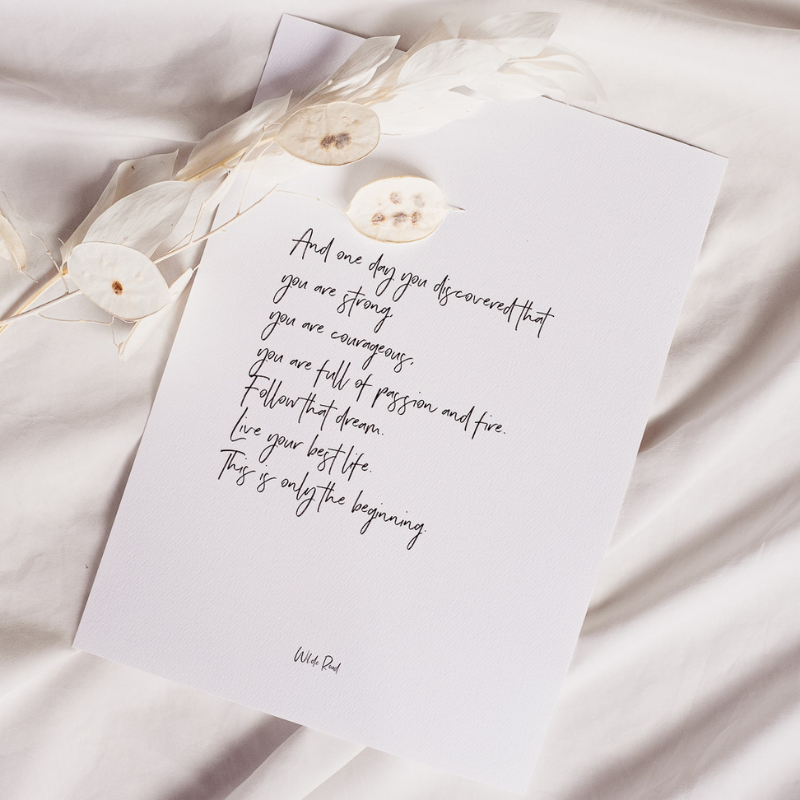 And one day you discovered that
you are strong,
you are courageous,
you are full of passion and fire.
Follow that dream.
Live your best life.
This is only the beginning.
Wilde Road